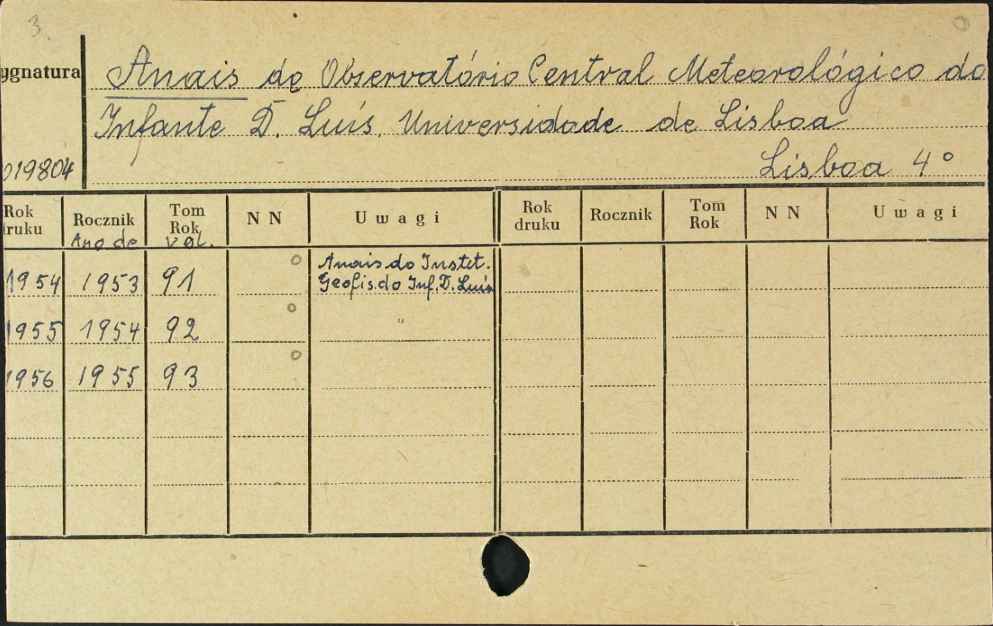 3.
ygnatura
Anais do Observatório Central Meteorológico do
Infante D. Luís. Universidade de Lisboa
019804
Lisboa 4°
Rok druku Rocznik Tom Rok N N Uwagi Rok druku Rocznik Tom Rok N N Uwagi
Ano de vol.
1954 1953 91 Anais do Instit.
Geofis. do Inf. D. Luís
1955 1954 92 "
1956 1955 93